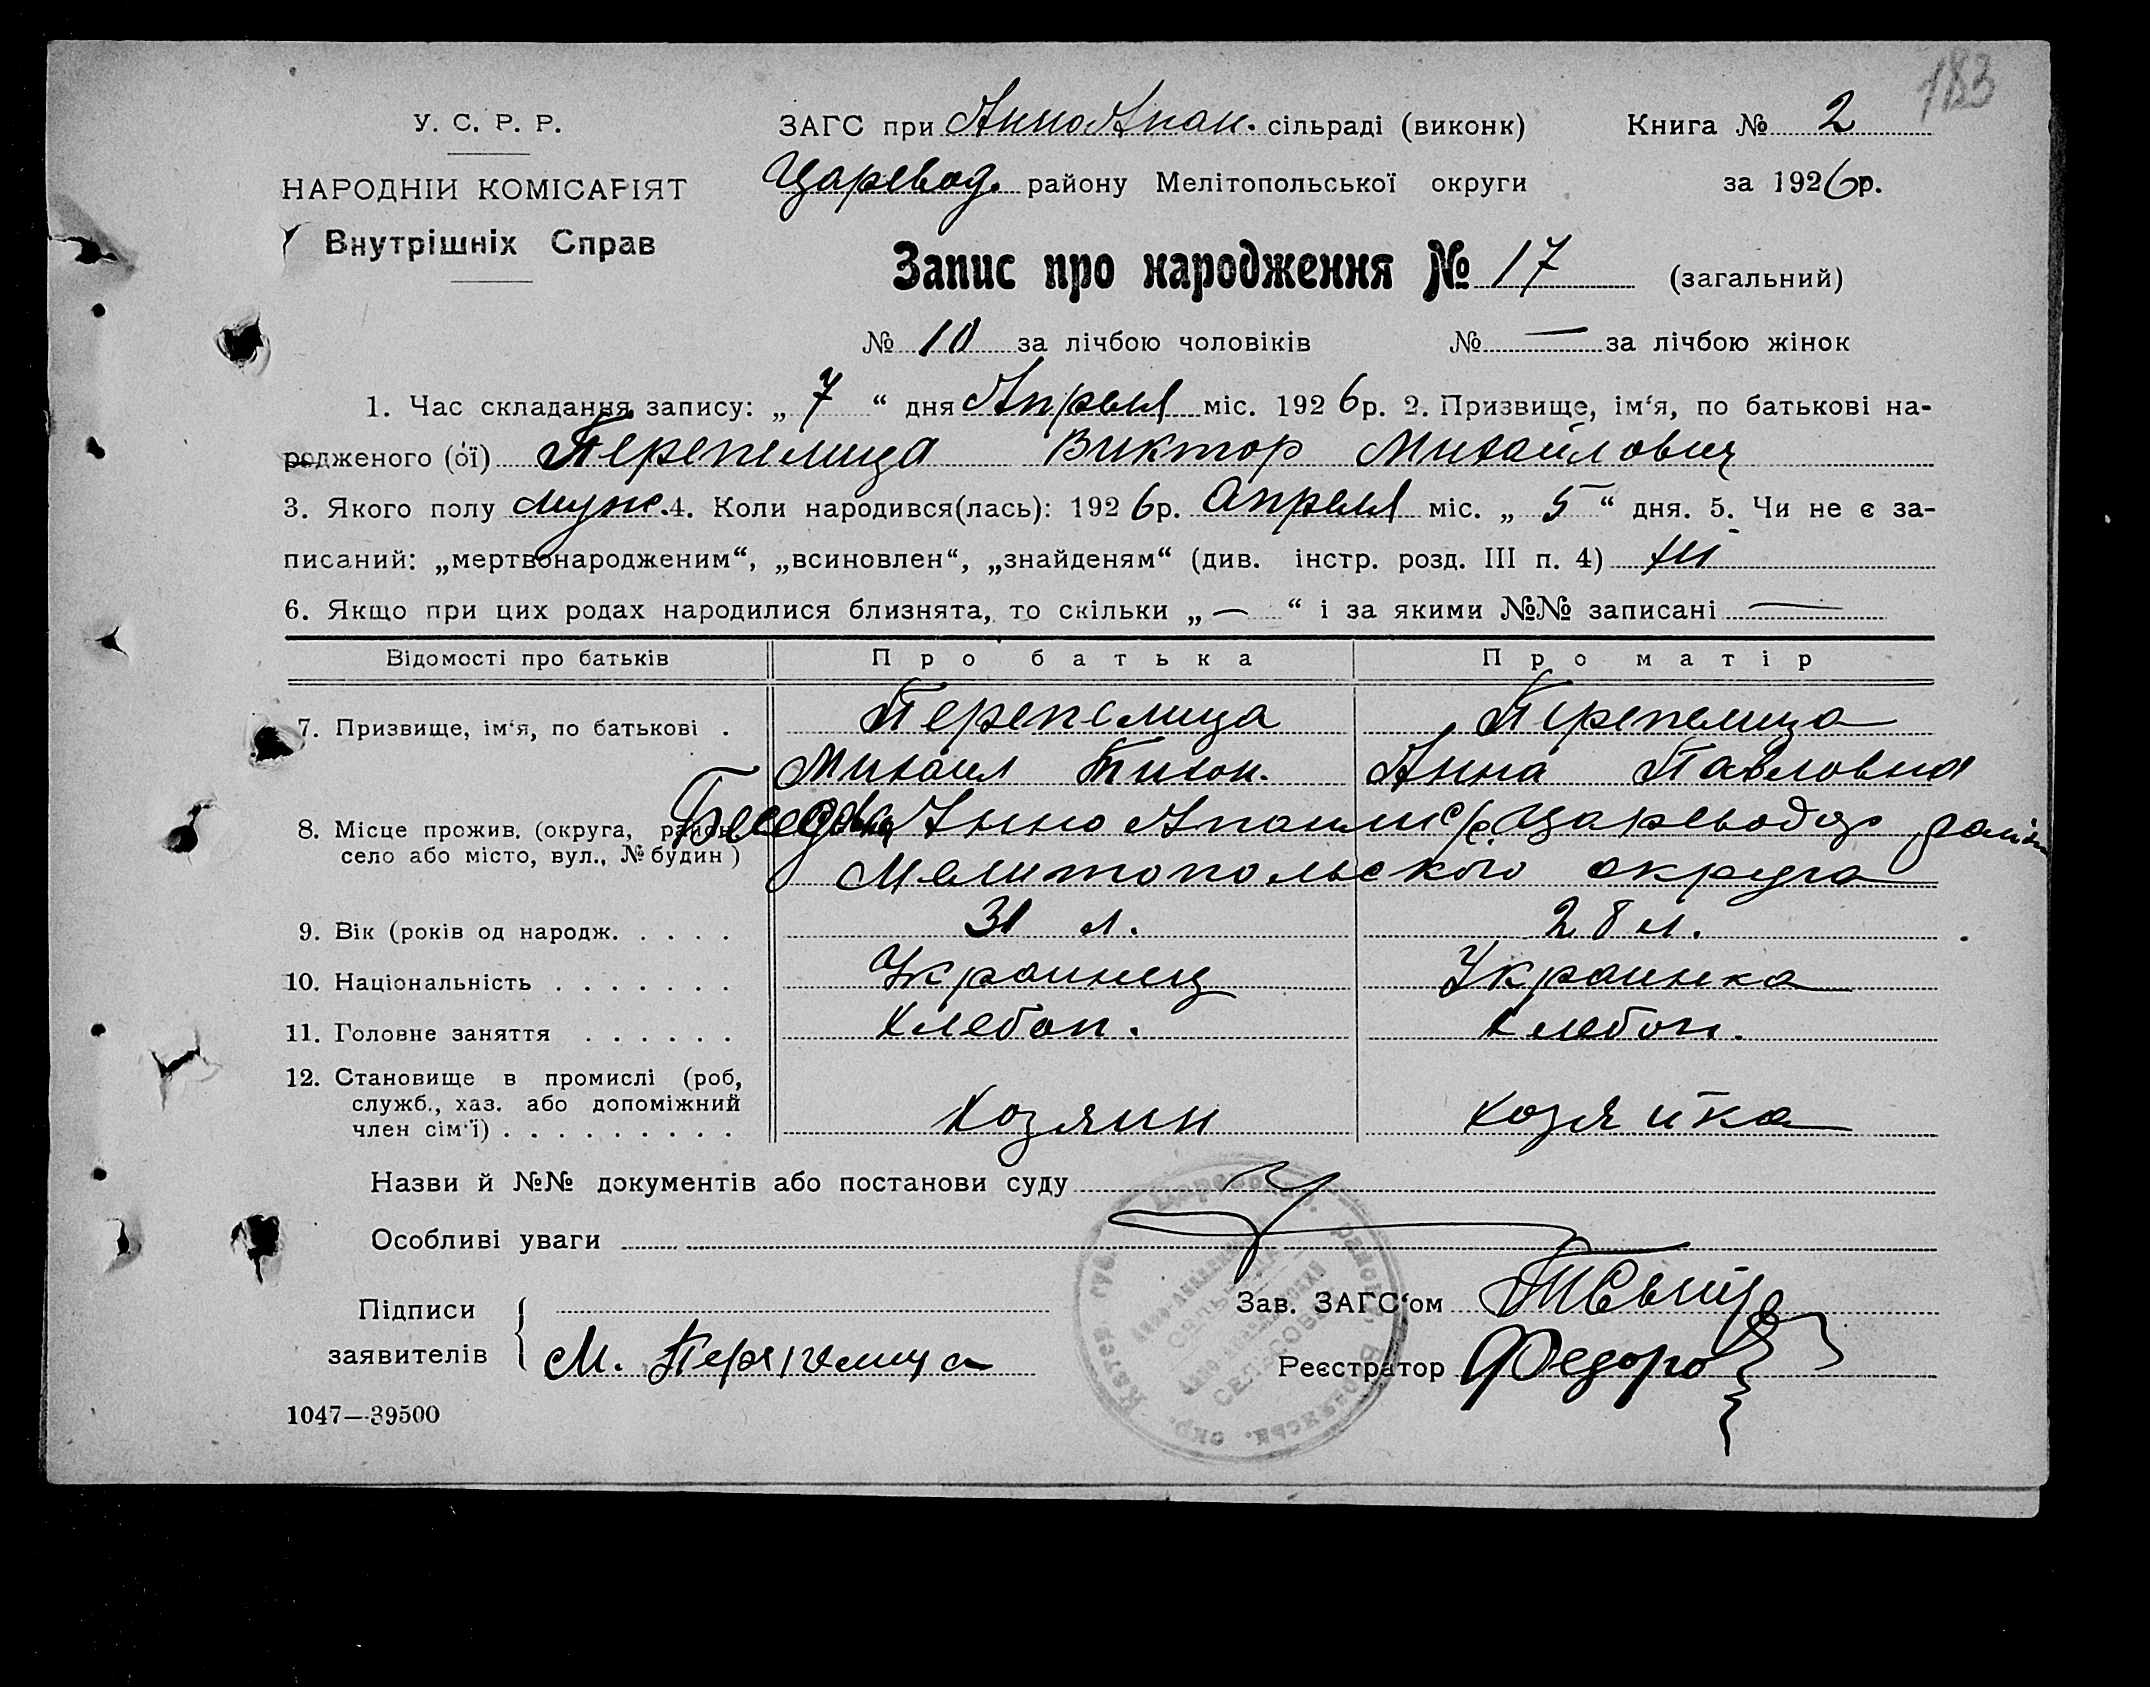 183
У. С. Р. Р.
НАРОДНІЙ КОМІСАРІЯТ
Внутрішніх Справ
ЗАГС при АнноАпан. сільраді (виконк) Книга № 2
Царевод. району Мелітопольської округи за 1926р.
Запис про народження № 17 (загальний)
№ 10 за лічбою чоловіків № — за лічбою жінок
1. Час складання запису: „ 7 “ дня Апреля міс. 1926р. 2. Призвище, ім‘я, по батькові на-
родженого (ої) Перепелица Виктор Михайлович
3. Якого полу муж. 4. Коли народився(лась): 1926р. Апреля міс. „ 5 “ дня. 5. Чи не є за-
писаний: „мертвонародженим“, „всиновлен“, „знайденям“ (див. інстр. розд. III п. 4)
6. Якщо при цих родах народилися близнята, то скільки „ — “ і за якими №№ записані —
Відомості про батьків Про батька Про матір
7. Призвище, ім‘я, по батькові . Перепелица Перепелица
Михаил Тихон. Анна Павловна
8. Місце прожив. (округа, район, село або місто, вул., № будин ) Анно Апан с/с Царевод
Мелитопольского округа
9. Вік (років од народж. . . . . 31 л. 28 л.
10. Національність . . . . . . . Украинец Украинка
11. Головне заняття . . . . . . Хлебоп. Хлебоп.
12. Становище в промислі (роб,
служб., хаз. або допоміжний
член сім‘ї) . . . . . . . . . Хозяин Хозяйка
Назви й №№ документів або постанови суду
Особливі уваги
Підписи
заявителів М. Перепелица
Зав. ЗАГС‘ом
Реєстратор Федоров
1047—39500